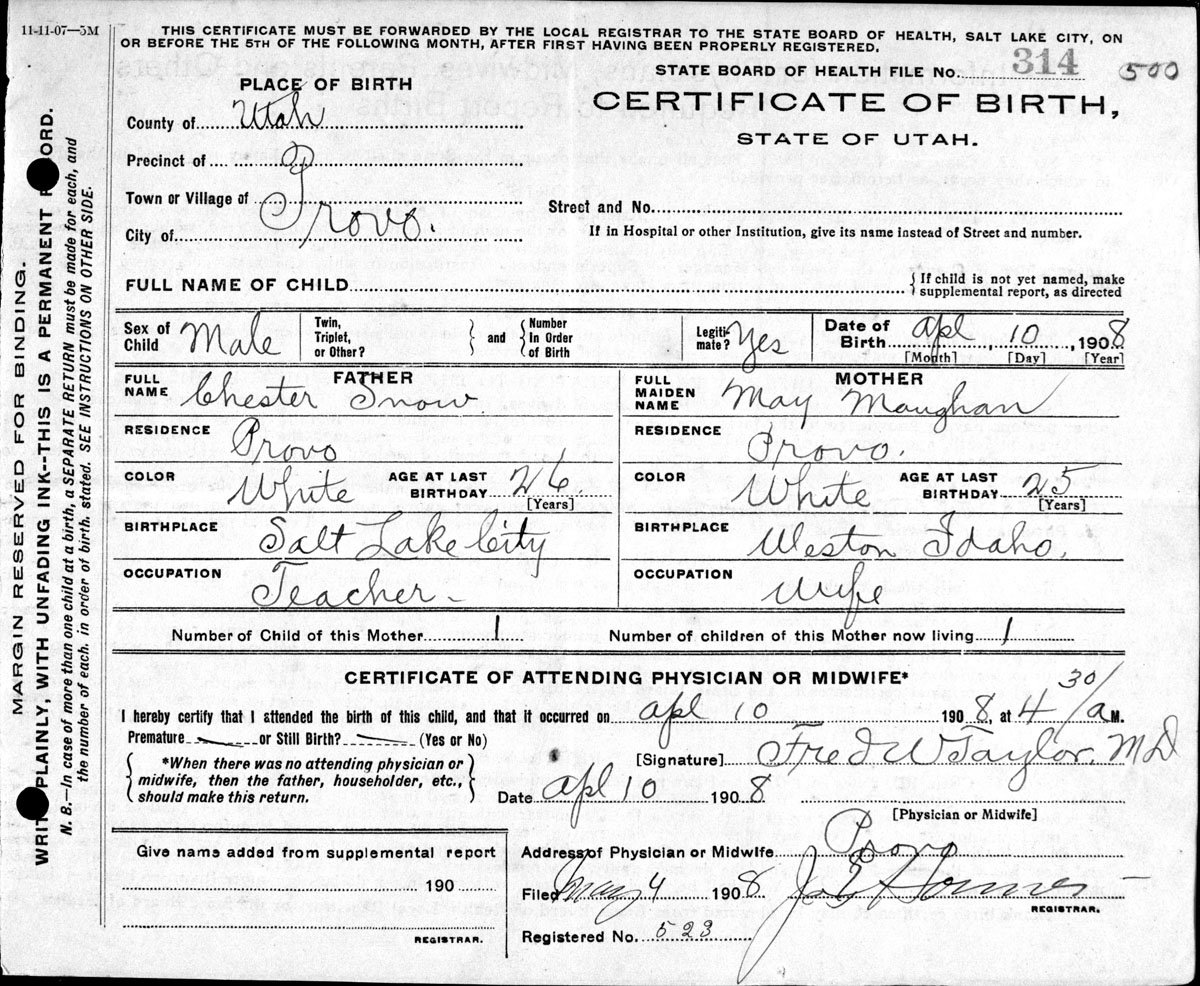 11-11-07—5M
THIS CERTIFICATE MUST BE FORWARDED BY THE LOCAL REGISTRAR TO THE STATE BOARD OF HEALTH, SALT LAKE CITY, ON
OR BEFORE THE 5TH OF THE FOLLOWING MONTH, AFTER FIRST HAVING BEEN PROPERLY REGISTERED.
STATE BOARD OF HEALTH FILE No. 314 500
PLACE OF BIRTH
CERTIFICATE OF BIRTH,
STATE OF UTAH.
County of Utah
Precinct of
Town or Village of
City of Provo.
Street and No.
If in Hospital or other Institution, give its name instead of Street and number.
FULL NAME OF CHILD
{If child is not yet named, make
supplemental report, as directed
Sex of Child Male
Twin, Triplet, or Other? } and { Number in Order of Birth
Legitimate? Yes
Date of Birth Apl 10, 1908
[Month] [Day] [Year]
FATHER
FULL NAME Chester Snow
RESIDENCE Provo
COLOR White AGE AT LAST BIRTHDAY 26. [Years]
BIRTHPLACE Salt Lake City
OCCUPATION Teacher -
MOTHER
FULL MAIDEN NAME May Maughan
RESIDENCE Provo.
COLOR White AGE AT LAST BIRTHDAY 25 [Years]
BIRTHPLACE Weston Idaho.
OCCUPATION Wife
Number of Child of this Mother 1 Number of children of this Mother now living 1
CERTIFICATE OF ATTENDING PHYSICIAN OR MIDWIFE*
I hereby certify that I attended the birth of this child, and that it occurred on Apl 10 1908, at 4 30/a M.
Premature or Still Birth? (Yes or No)
{ *When there was no attending physician or
midwife, then the father, householder, etc.,
should make this return. }
[Signature] Fred W Taylor, MD
Date Apl 10 1908
[Physician or Midwife]
Give name added from supplemental report
190
REGISTRAR.
Address of Physician or Midwife Provo
Filed May 4 1908
REGISTRAR.
Registered No. 523
MARGIN RESERVED FOR BINDING.
WRITE PLAINLY, WITH UNFADING INK--THIS IS A PERMANENT RECORD.
N. B.—In case of more than one child at a birth, a SEPARATE RETURN must be made for each, and
the number of each. in order of birth, stated. SEE INSTRUCTIONS ON OTHER SIDE.